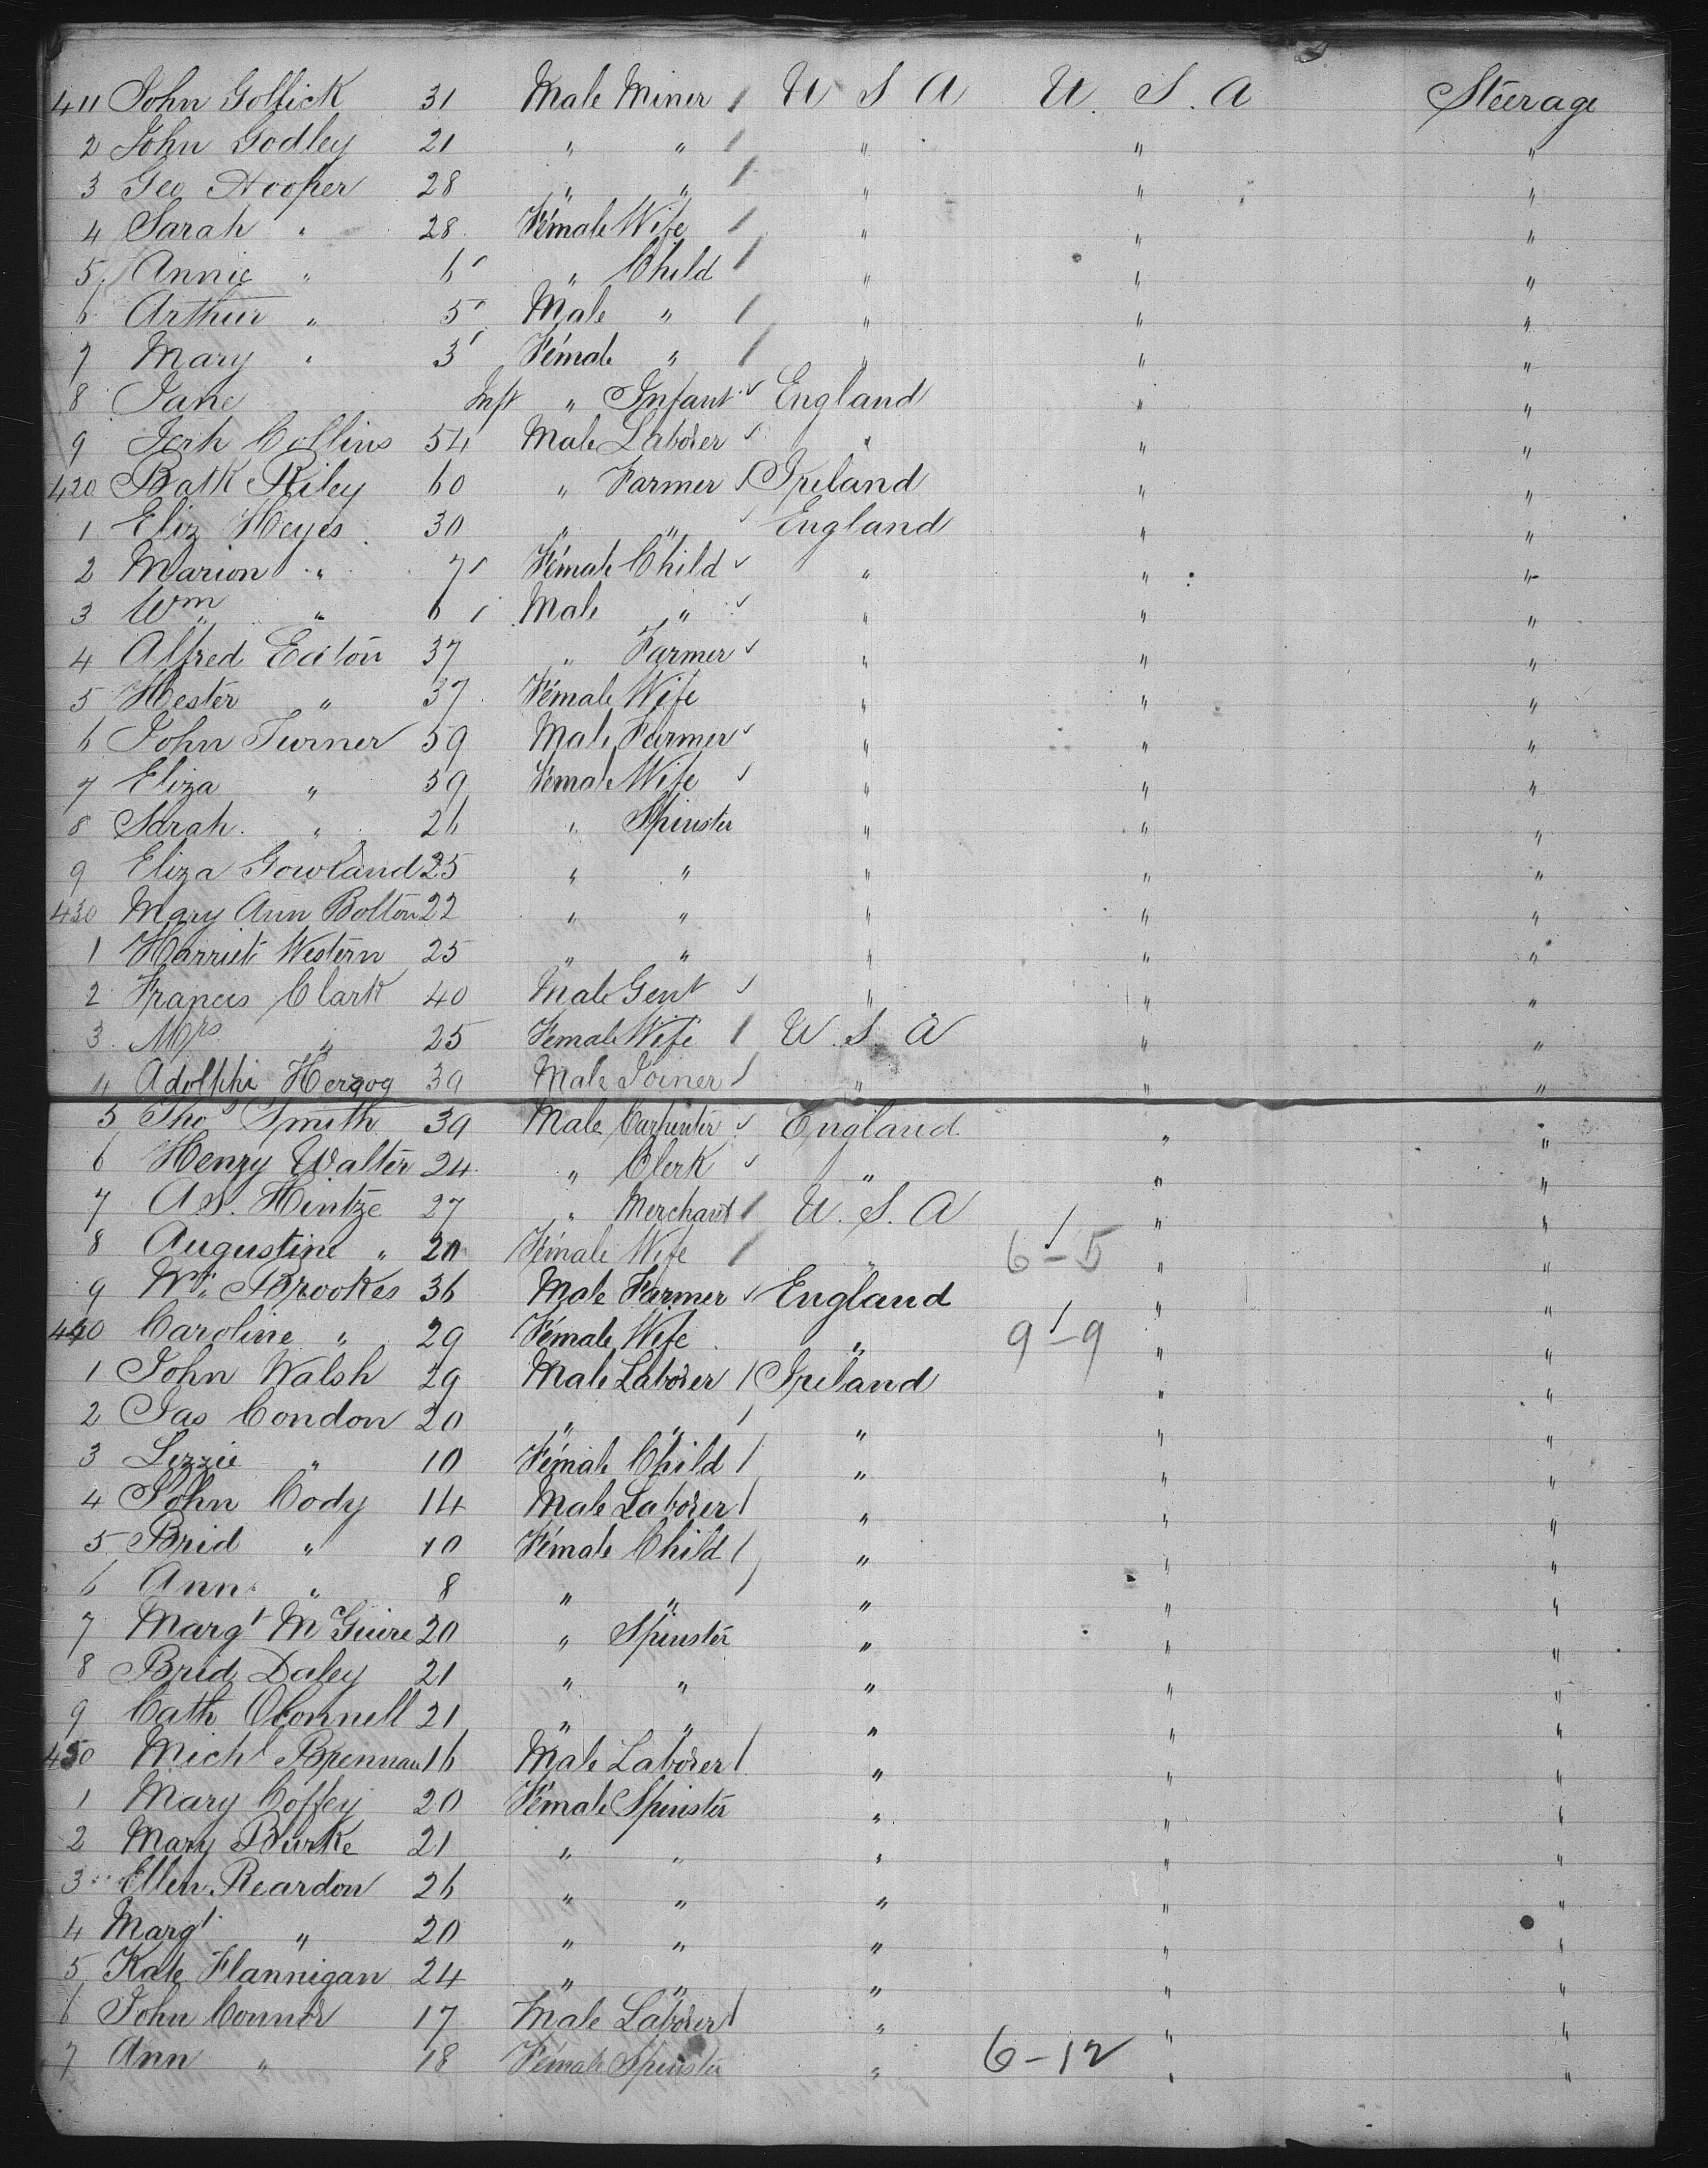 411 John Gollick 31 Male Miner / U S A U. S. A Steerage
2 John Godley 21 " " / " " "
3 Geo Hooper 28 " " / " " "
4 Sarah " 28 Female Wife / " " "
5 Annie " 6 " Child / " " "
6 Arthur " 5 Male " / " " "
7 Mary " 3 Female " / " " "
8 Jane Inft " Infant ✓ England " "
9 Jerh Collins 54 Male Laborer ✓ " " "
420 Patk Riley 60 " Farmer / Ireland " "
1 Eliz Heyes 30 " " ✓ England " "
2 Marion " 7 Female Child ✓ " " "
3 Wm " 6 Male " ✓ " " "
4 Alfred Eaton 37 " Farmer ✓ " " "
5 Hester " 37 Female Wife " " "
6 John Turner 59 Male Farmer ✓ " " "
7 Eliza " 59 Female Wife ✓ " " "
8 Sarah " 26 " Spinster " " "
9 Eliza Gowland 25 " " " " "
430 Mary Ann Bolton 22 " " " " "
1 Harriet Western 25 " " " " "
2 Francis Clark 40 Male Gent ✓ " " "
3 Mrs " 25 Female Wife / U. S. A " "
4 Adolphe Herzog 39 Male Joiner / " " "
5 Thos Smith 39 Male Carpenter ✓ England " "
6 Henry Walter 24 " Clerk ✓ " " "
7 A S. Hintze 27 " Merchant / U. S. A " "
8 Augustine " 20 Female Wife / " 6-5 " "
9 Wm Brookes 36 Male Farmer ✓ England " "
440 Caroline " 29 Female Wife " 9-9 " "
1 John Walsh 29 Male Laborer / Ireland " "
2 Jas Condon 20 " " / " " "
3 Lizzie " 10 Female Child / " " "
4 John Cody 14 Male Laborer / " " "
5 Brid " 10 Female Child / " " "
6 Ann " 8 " " / " " "
7 Margt McGuire 20 " Spinster " " "
8 Brid Daley 21 " " " " "
9 Cath OConnell 21 " " " " "
450 Michl Brennan 16 Male Laborer / " " "
1 Mary Coffey 20 Female Spinster " " "
2 Mary Burke 21 " " " " "
3 Ellen Reardon 26 " " " " "
4 Margt " 20 " " " " "
5 Kate Flannigan 24 " " " " "
6 John Connor 17 Male Laborer / " " "
7 Ann " 18 Female Spinster " 6-12 " "